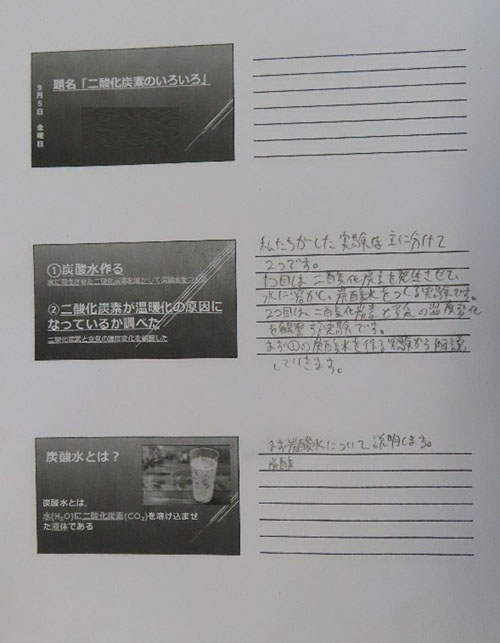 題名「二酸化炭素のいろいろ」
9月5日 金曜日
①炭酸水作る
水に発生させた二酸化炭素を溶かして炭酸水をつくる
②二酸化炭素が温暖化の原因に
なっているか調べた
二酸化炭素と空気の温度変化を観察した
私たちがした実験は主に分けて
2つです。
1つ目は二酸化炭素を発生させて、
水に溶かして、炭酸水をつくる実験です。
2つ目は、二酸化炭素と空気の温度変化
を観察する実験です。
まず①の炭酸水を作る実験から解説
していきます。
炭酸水とは？
炭酸水とは、
水(H₂O)に二酸化炭素(CO₂)を溶け込ませ
た液体である
まず炭酸水について説明します。
炭酸